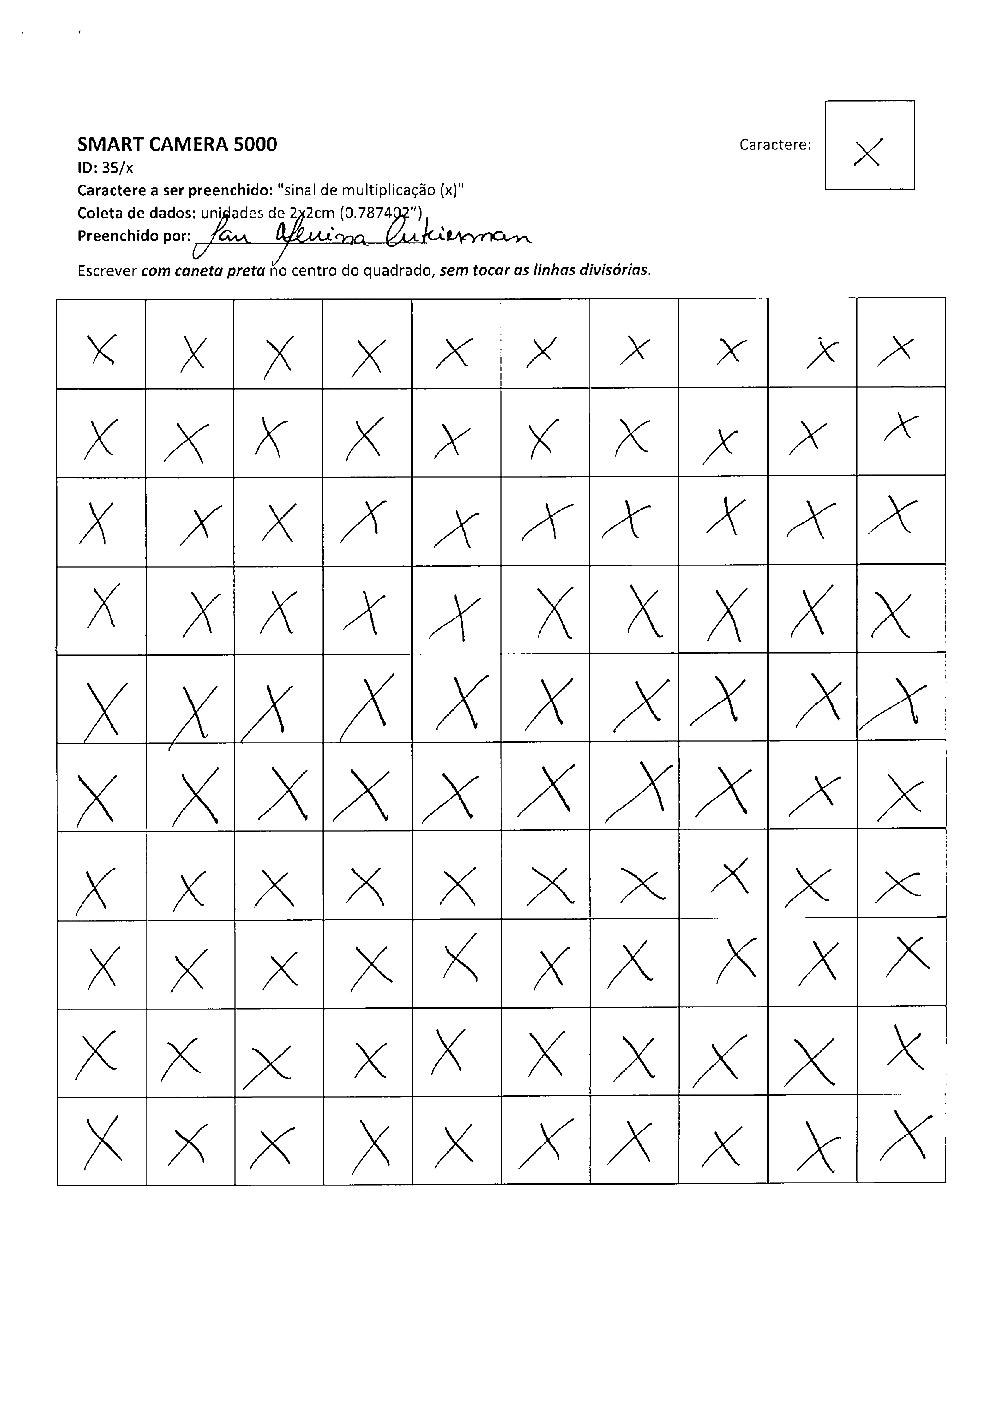 SMART CAMERA 5000
Caractere: x
ID: 35/x
Caractere a ser preenchido: "sinal de multiplicação (x)"
Coleta de dados: unidades de 2x2cm (0.787402")
Preenchido por:
Escrever com caneta preta no centro do quadrado, sem tocar as linhas divisórias.
x x x x x x x x x x
x x x x x x x x x x
x x x x x x x x x x
x x x x x x x x x x
x x x x x x x x x x
x x x x x x x x x x
x x x x x x x x x x
x x x x x x x x x x
x x x x x x x x x x
x x x x x x x x x x